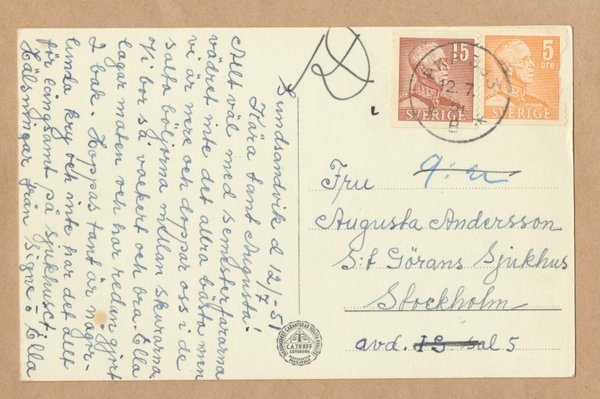 Sundsandvik d 12/7-51
Kära tant Augusta!
Allt väl med semesterfararna
vädret inte det allra bästa men
vi är mere och doppar oss i de
salta böljorna mellan skurarna.
Vi bor så vackert och bra. Ella
lagar maten och har redan gjort
I bak. Hoppas tant är någor-
lunda kry och inte har det allt
för långsamt på sjukhuset.
Hälsningar från Signe – Ella
15
SVERIGE
5
ÖRE
SVERIGE
12.7.
B
Fru
Augusta Andersson
S:t Görans Sjukhus
Stockholm
avd. 19 sal 5